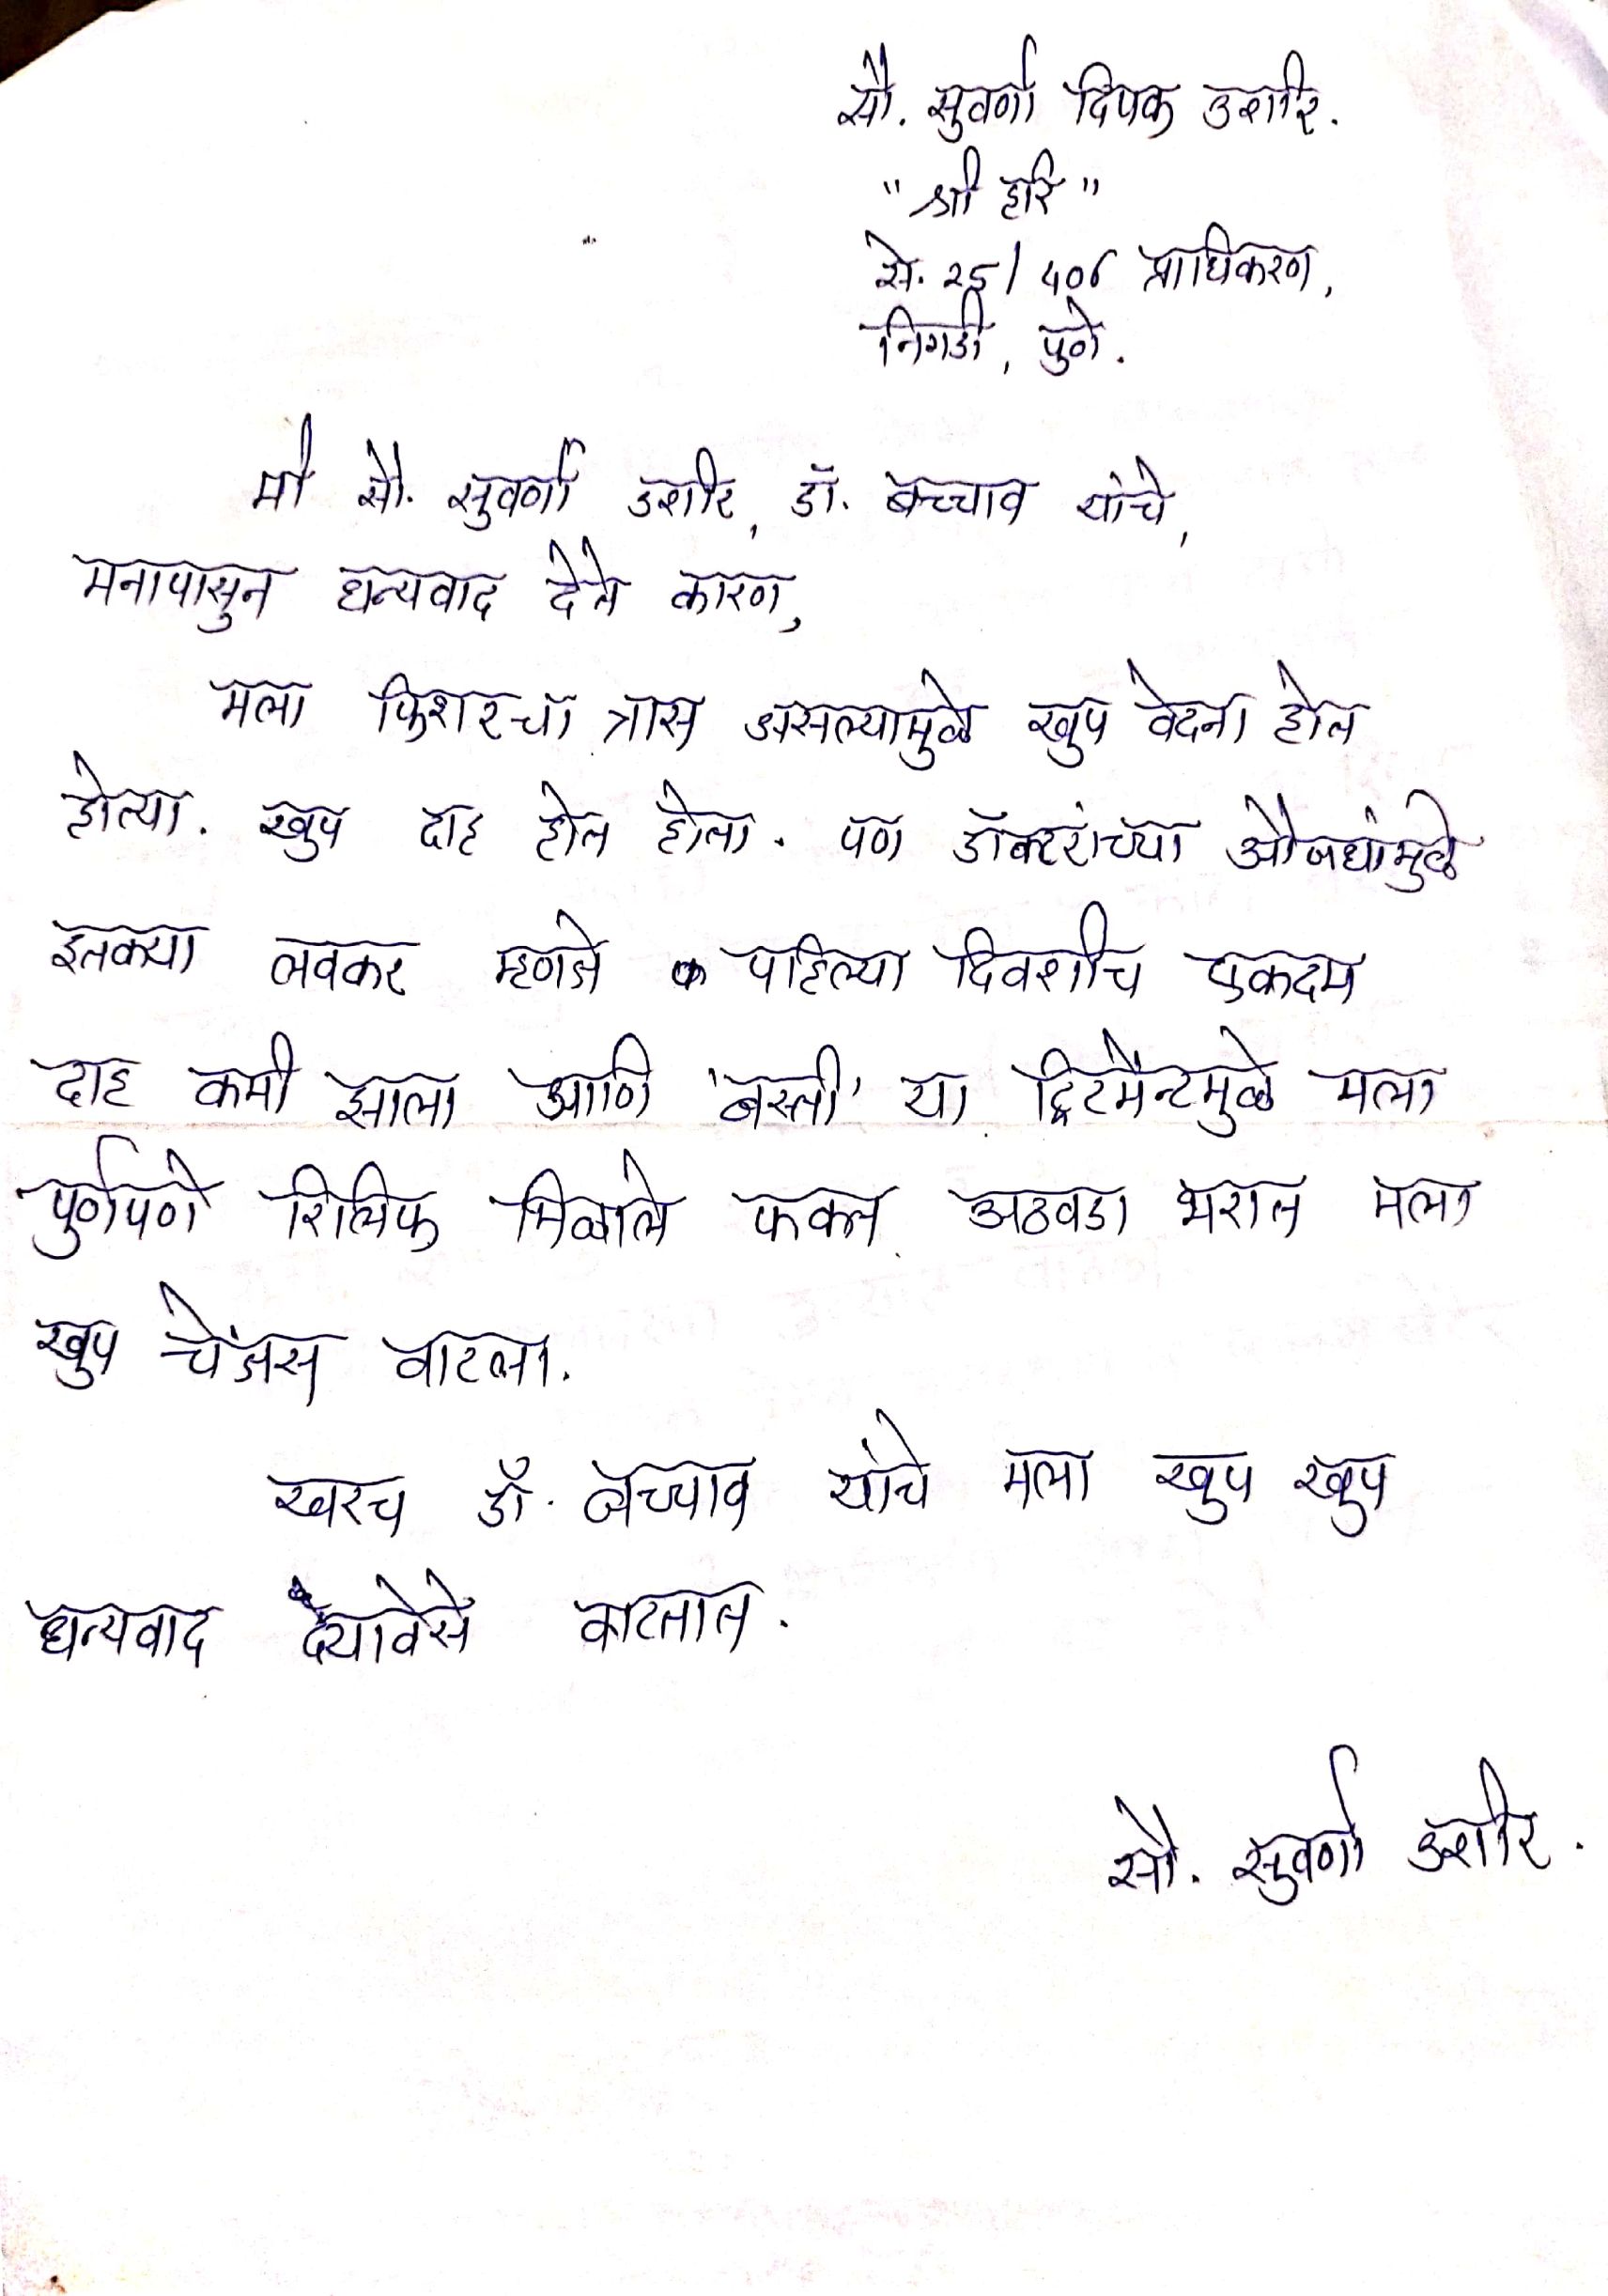 सौ. सुवर्णा दिपक उशीर.
"श्री हरि"
से. २५/ ५०६ प्राधिकरण,
निगडी, पुणे.
मी सौ. सुवर्णा उशीर, डॉ. बच्चाव यांचे,
मनापासुन धन्यवाद देते कारण,
मला फिशरचा त्रास असल्यामुळे खुप वेदना होत
होत्या. खुप दाह होत होता. पण डॉक्टरांच्या औषधांमुळे
इतक्या लवकर म्हणजे पहिल्या दिवशीच एकदम
दाह कमी झाला आणि 'बस्ती' या ट्रिटमेंन्टमुळे मला
पुर्णपणे रिलिफ मिळाले फक्त अठवडा भरात मला
खुप चेंजस वाटला.
खरच डॉ. बच्चाव यांचे मला खुप खुप
धन्यवाद द्यावेसे वाटतात.
सौ. सुवर्णा उशीर.